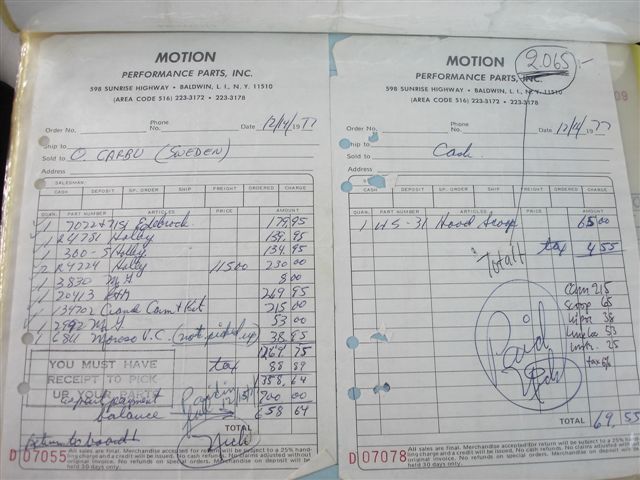 MOTION
PERFORMANCE PARTS, INC.
598 SUNRISE HIGHWAY • BALDWIN, L. I., N. Y. 11510
(AREA CODE 516) 223-3172 • 223-3178
Order No. Phone No. Date 12/14/1977
Ship to
Sold to O. CARBU (SWEDEN)
Address
SALESMAN
CASH DEPOSIT SP. ORDER SHIP FREIGHT ORDERED CHARGE
QUAN. PART NUMBER ARTICLES PRICE AMOUNT
1 Edelbrock 179.95
1 R4781 Holley 139.95
1 300-5 Holley 134.95
2 R4224 Holley 115 00 230 00
1 3830 8 00
1 20413 269.95
1 134702 Crane Cam & Kit 215 00
1 53 00
1 Moroso V.C. (not picked up) 38.85
YOU MUST HAVE
RECEIPT TO PICK
UP YOUR PARTS
tax
1358.64
payment 700 00
balance 658 64
TOTAL
Nick
D 07055
All sales are final. Merchandise accepted for return will be subject to a 25% handling charge and credit will be issued. No claims adjusted without original invoice. No refunds on special orders. Merchandise on deposit will be held 30 days only.
MOTION
2.065:-
PERFORMANCE PARTS, INC.
598 SUNRISE HIGHWAY • BALDWIN, L. I., N. Y. 11510
(AREA CODE 516) 223-3172 • 223-3178
Order No. Phone No. Date 12/14/1977
Ship to
Sold to Cash
Address
CASH DEPOSIT SP. ORDER SHIP FREIGHT ORDERED CHARGE
QUAN. PART NUMBER ARTICLES PRICE AMOUNT
1 HS-31 Hood Scoop 65 00
tax 4 55
Totalt
Cam 215
Scoop 65
38
53
25
tax
Paid
TOTAL 69.55
D 07078
All sales are final. Merchandise accepted for return will be subject to a 25% handling charge and credit will be issued. No claims adjusted without original invoice. No refunds on special orders. Merchandise on deposit will be held 30 days only.